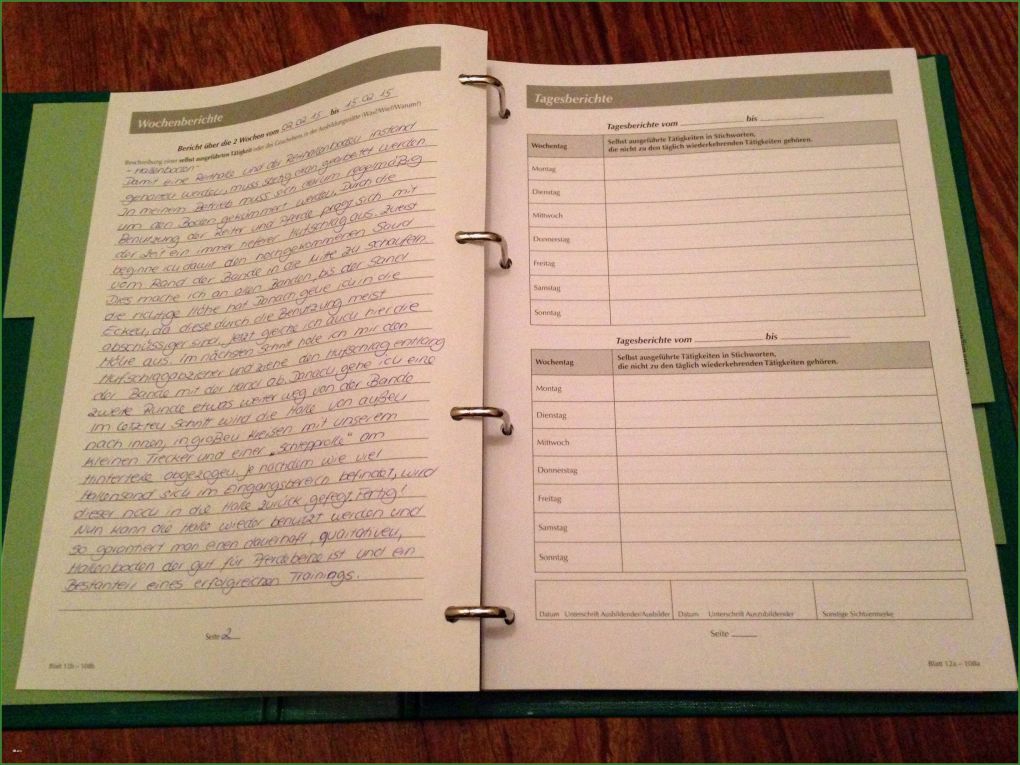 Wochenberichte
Bericht über die 2 Wochen vom 02.02.15 bis 15.02.15
Beschreibung einer selbst ausgeführten Tätigkeit oder des Geschehens in der Ausbildungsstätte (Was?/Wie?/Warum?)
- Hallenboden
Damit eine Reithalle und der Reithallenboden instand
gehalten werden, muss stetig daran gearbeitet werden
In meinem Betrieb muss sich darum regelmäßig
um den Boden gekümmert werden. Durch die
Benutzung der Reiter und Pferde prägt sich mit
der Zeit ein immer tieferer Hufschlag aus. Zuerst
beginne ich damit den hochgekommenen Sand
vom Rand der Bande in die Mitte zu schaufeln.
Dies mache ich an allen Banden, bis der Sand
die richtige Höhe hat. Danach gehe ich in die
Ecken, da diese durch die Benutzung meist
abschüssiger sind. Jetzt gleiche ich auch hier die
Höhe aus. Im nächsten Schritt hole ich mir den
Hufschlagabzieher und ziehe den Hufschlag entlang
der Bande mit der Hand ab. Danach gehe ich eine
zweite Runde etwas weiter weg von der Bande
Im letzten Schritt wird die Halle von außen
nach innen, in großen Kreisen mit unserem
kleinen Trecker und einer „Schlepprolle" am
Hinterteile abgezogen. Je nachdem wie viel
Hallensand sich im Eingangsbereich befindet, wird
dieser noch in die Halle zurück gefegt. Fertig!
Nun kann die Halle wieder benutzt werden und
so garantiert man einen dauerhaft, qualitativen,
Hallenboden der gut für Pferdebeine ist und ein
Bestanteil eines erfolgreichen Trainings.
Seite 2
Blatt 12b – 108b
Tagesberichte
Tagesberichte vom bis
Wochentag Selbst ausgeführte Tätigkeiten in Stichworten,
die nicht zu den täglich wiederkehrenden Tätigkeiten gehören.
Montag
Dienstag
Mittwoch
Donnerstag
Freitag
Samstag
Sonntag
Tagesberichte vom bis
Wochentag Selbst ausgeführte Tätigkeiten in Stichworten,
die nicht zu den täglich wiederkehrenden Tätigkeiten gehören.
Montag
Dienstag
Mittwoch
Donnerstag
Freitag
Samstag
Sonntag
Datum Unterschrift Ausbildender/Ausbilder Datum Unterschrift Auszubildender Sonstige Sichtvermerke
Seite
Blatt 12a – 108a